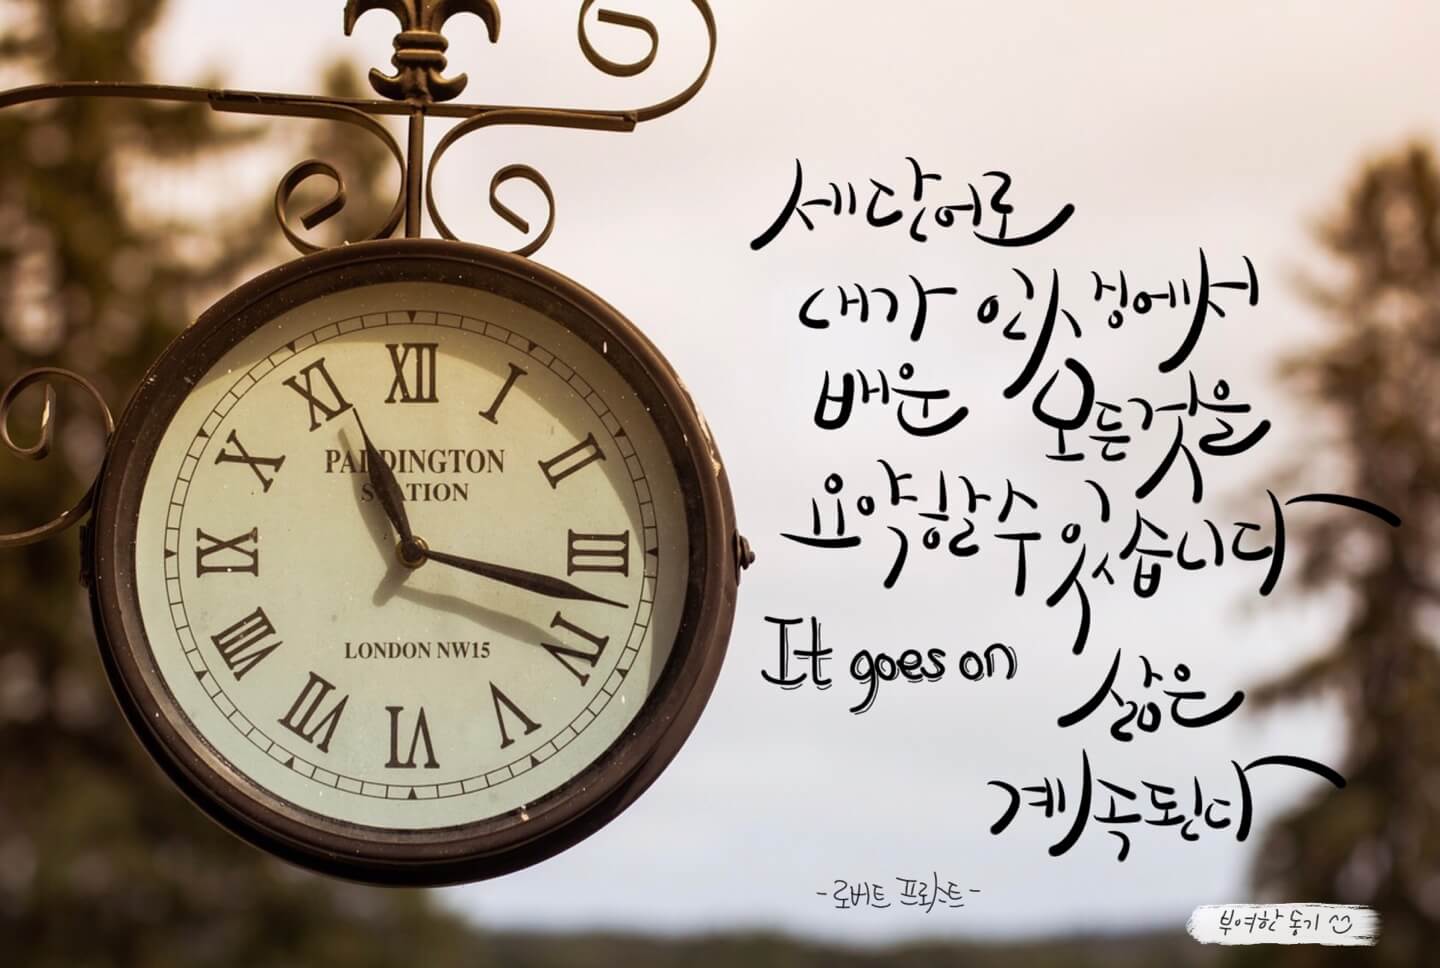 XII
I
II
III
IV
V
VI
VII
VIII
IX
X
XI
PADDINGTON
STATION
LONDON NW15
세 단어로
내가 인생에서
배운 모든 것을
요약할 수 있습니다
It goes on
삶은
계속된다
-로버트 프로스트-
부여한 동기